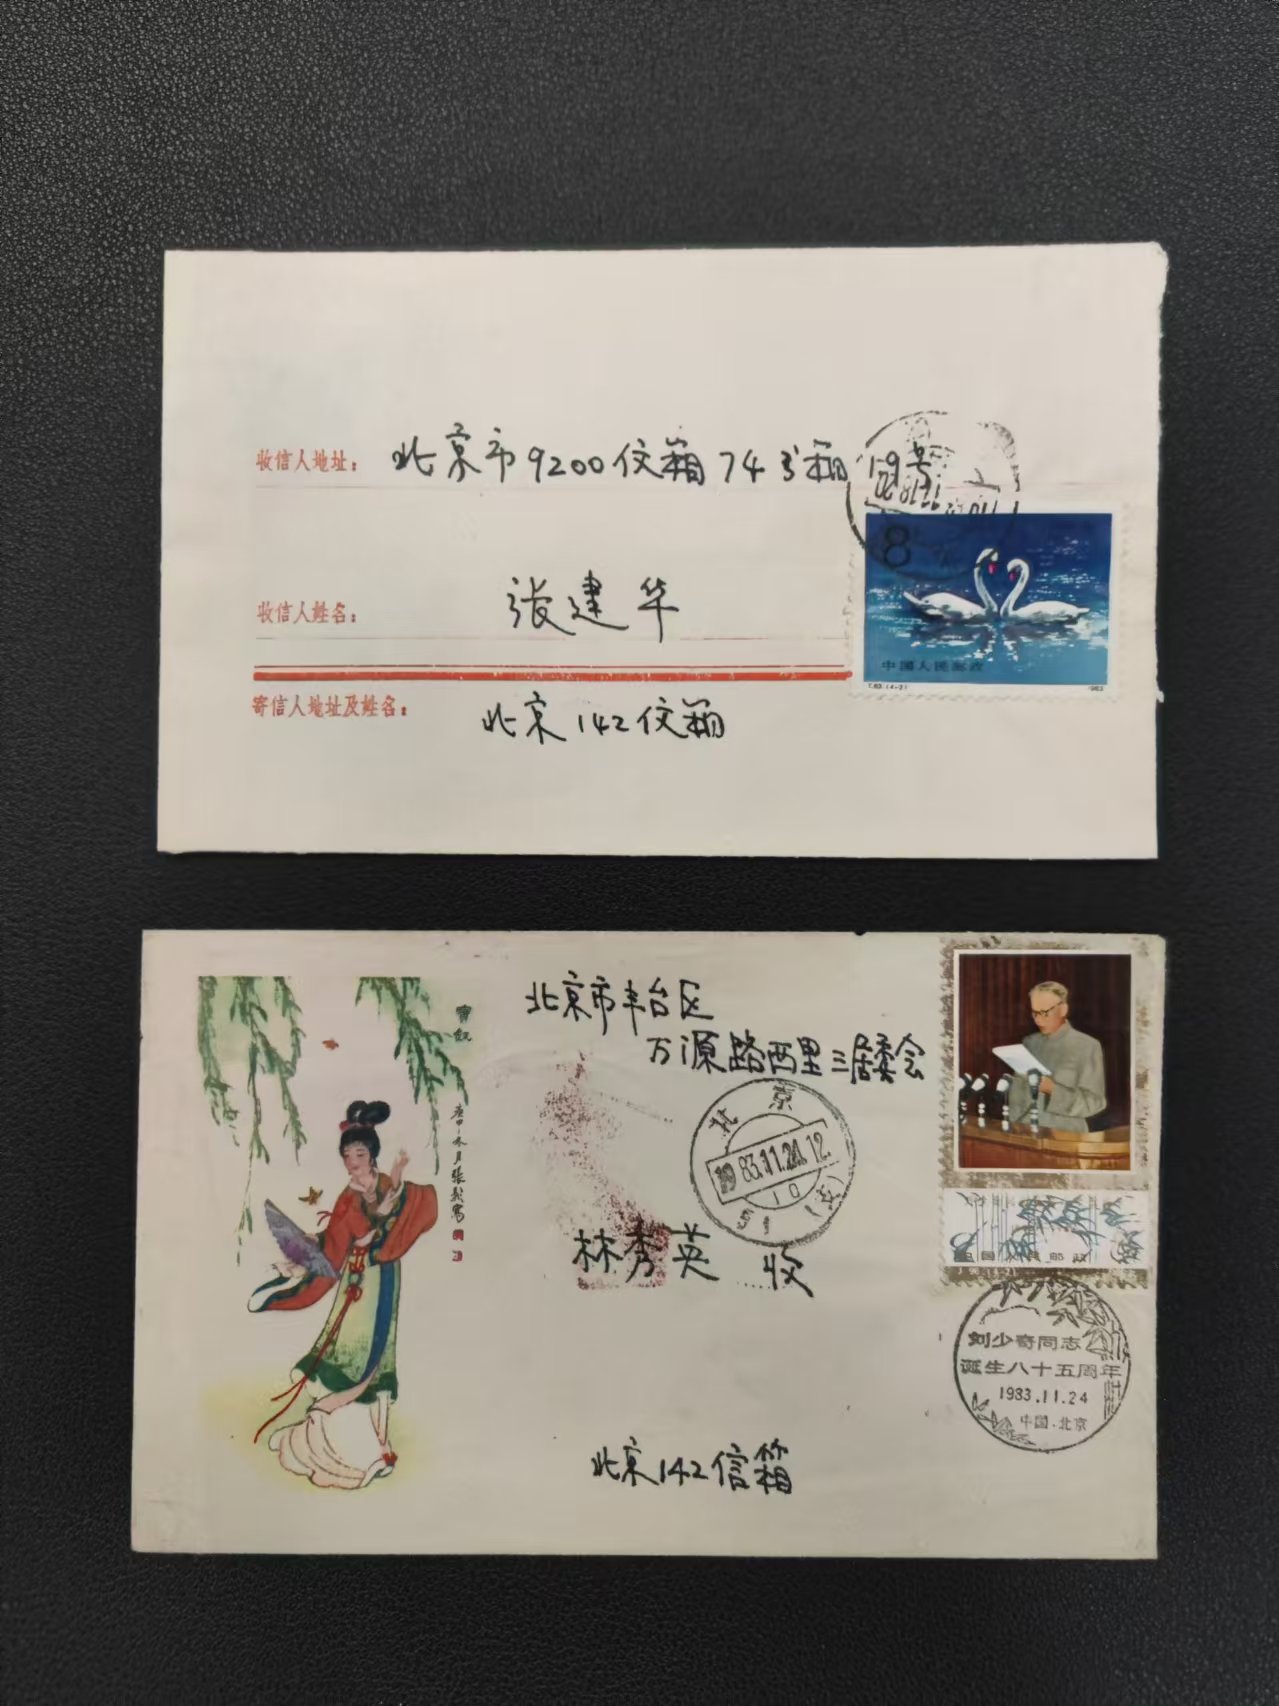 收信人地址：北京市9200信箱74号箱19号
8
收信人姓名：张建华
中国人民邮政
T.83.(4-2) 1983
寄信人地址及姓名：北京142信箱
北京市丰台区
万源路西里三居委会
宝钗
北京
1983.11.24.12
10
51
林秀英 收
中国人民邮政
刘少奇同志
诞生八十五周年
1983.11.24
中国·北京
北京142信箱